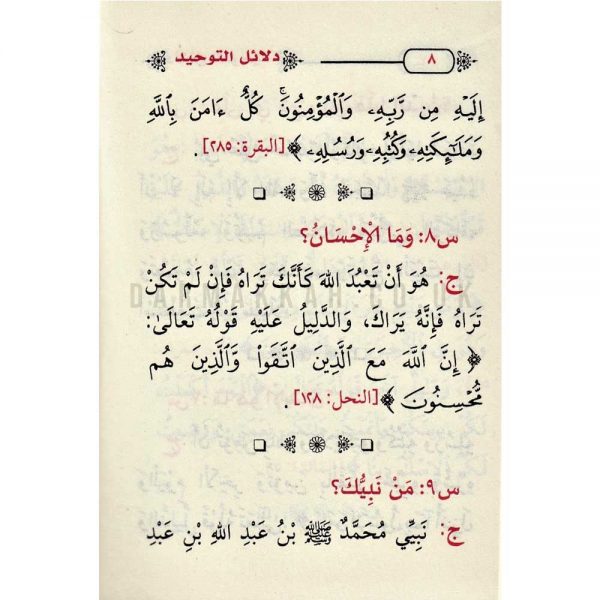 ٨ دلائل التوحيد
إِلَيْهِ مِن رَّبِّهِۦ وَٱلْمُؤْمِنُونَ ۚ كُلٌّ ءَامَنَ بِٱللَّهِ
وَمَلَٰٓئِكَتِهِۦ وَكُتُبِهِۦ وَرُسُلِهِۦ ﴾ [البقرة: ٢٨٥].
س٨: وَمَا الْإِحْسَانُ؟
ج: هُوَ أَنْ تَعْبُدَ اللهَ كَأَنَّكَ تَرَاهُ فَإِنْ لَمْ تَكُنْ
تَرَاهُ فَإِنَّهُ يَرَاكَ، وَالدَّلِيلُ عَلَيْهِ قَوْلُهُ تَعَالَى:
﴿ إِنَّ ٱللَّهَ مَعَ ٱلَّذِينَ ٱتَّقَوا۟ وَّٱلَّذِينَ هُم
مُّحْسِنُونَ ﴾ [النحل: ١٢٨].
س٩: مَنْ نَبِيُّكَ؟
ج: نَبِيِّي مُحَمَّدٌ ﷺ بْنُ عَبْدِ اللهِ بْنِ عَبْدِ
DARMAKKAH.CO.UK